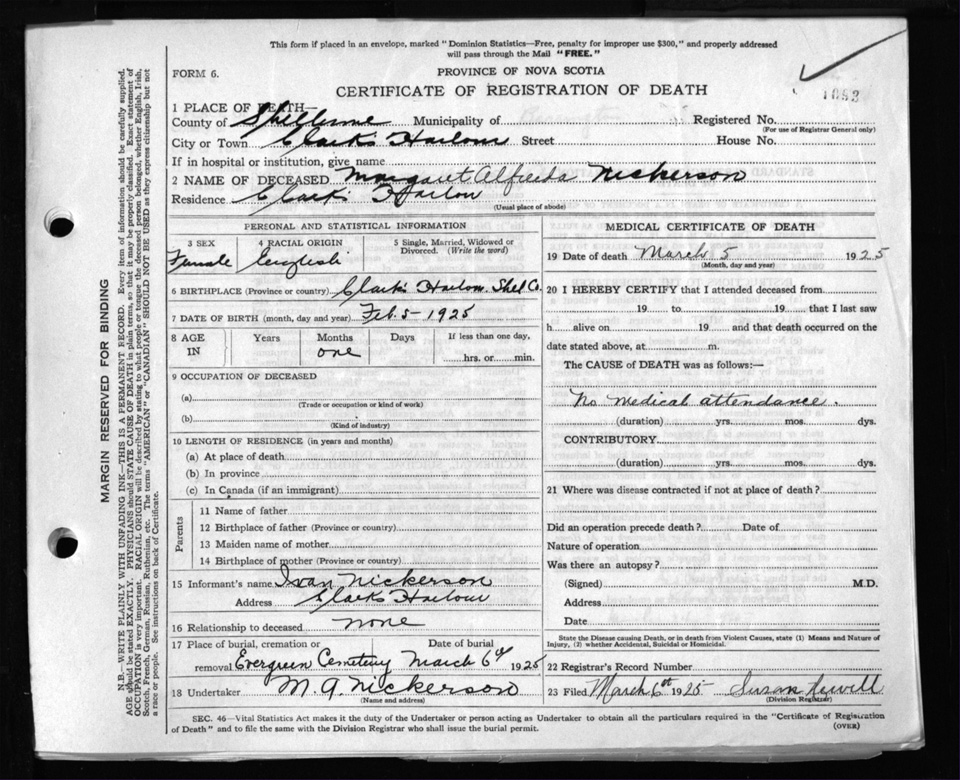 This form if placed in an envelope, marked "Dominion Statistics—Free, penalty for improper use $300," and properly addressed
will pass through the Mail "FREE."
FORM 6.
PROVINCE OF NOVA SCOTIA
CERTIFICATE OF REGISTRATION OF DEATH
1893
1 PLACE OF DEATH—
County of Shelburne Municipality of Registered No.
(For use of Registrar General only)
City or Town Clark's Harbour Street House No.
If in hospital or institution, give name
2 NAME OF DECEASED Margaret Alfreda Nickerson
Residence Clark's Harbour
(Usual place of abode)
PERSONAL AND STATISTICAL INFORMATION
3 SEX 4 RACIAL ORIGIN 5 Single, Married, Widowed or
Divorced. (Write the word)
Female English
6 BIRTHPLACE (Province or country) Clark's Harbour Shel Co.
7 DATE OF BIRTH (month, day and year) Feb. 5 - 1925
8 AGE IN Years Months Days If less than one day,
one
hrs. or min.
9 OCCUPATION OF DECEASED
(a)
(Trade or occupation or kind of work)
(b)
(Kind of industry)
10 LENGTH OF RESIDENCE (in years and months)
(a) At place of death
(b) In province
(c) In Canada (if an immigrant)
Parents
11 Name of father
12 Birthplace of father (Province or country)
13 Maiden name of mother
14 Birthplace of mother (Province or country)
15 Informant's name Ivan Nickerson
Address Clark's Harbour
16 Relationship to deceased none
17 Place of burial, cremation or Date of burial
removal Evergreen Cemetery March 6th 1925
18 Undertaker M. A. Nickerson
(Name and address)
MEDICAL CERTIFICATE OF DEATH
19 Date of death March 5 1925
(Month, day and year)
20 I HEREBY CERTIFY that I attended deceased from
19 to 19 that I last saw
h alive on 19 and that death occurred on the
date stated above, at m.
The CAUSE of DEATH was as follows:—
No medical attendance.
(duration) yrs. mos. dys.
CONTRIBUTORY
(duration) yrs. mos. dys.
21 Where was disease contracted if not at place of death?
Did an operation precede death? Date of
Nature of operation
Was there an autopsy?
(Signed) M.D.
Address
Date
State the Disease causing Death, or in death from Violent Causes, state (1) Means and Nature of
Injury, (2) whether Accidental, Suicidal or Homicidal.
22 Registrar's Record Number
23 Filed March 6th 1925 Susan Newell
(Division Registrar)
SEC. 46—Vital Statistics Act makes it the duty of the Undertaker or person acting as Undertaker to obtain all the particulars required in the "Certificate of Registration
of Death" and to file the same with the Division Registrar who shall issue the burial permit. (OVER)
MARGIN RESERVED FOR BINDING
N.B.—WRITE PLAINLY WITH UNFADING INK—THIS IS A PERMANENT RECORD. Every item of information should be carefully supplied.
AGE should be stated EXACTLY. PHYSICIANS should STATE CAUSE OF DEATH in plain terms, so that it may be properly classified. Exact statement of
OCCUPATION is very important. RACIAL ORIGIN will be described by stating to what people or tongue the deceased person belonged, whether English, Irish,
Scotch, French, German, Russian, Ruthenian, etc. The terms "AMERICAN" or "CANADIAN" SHOULD NOT BE USED as they express citizenship but not
a race or people. See instructions on back of Certificate.